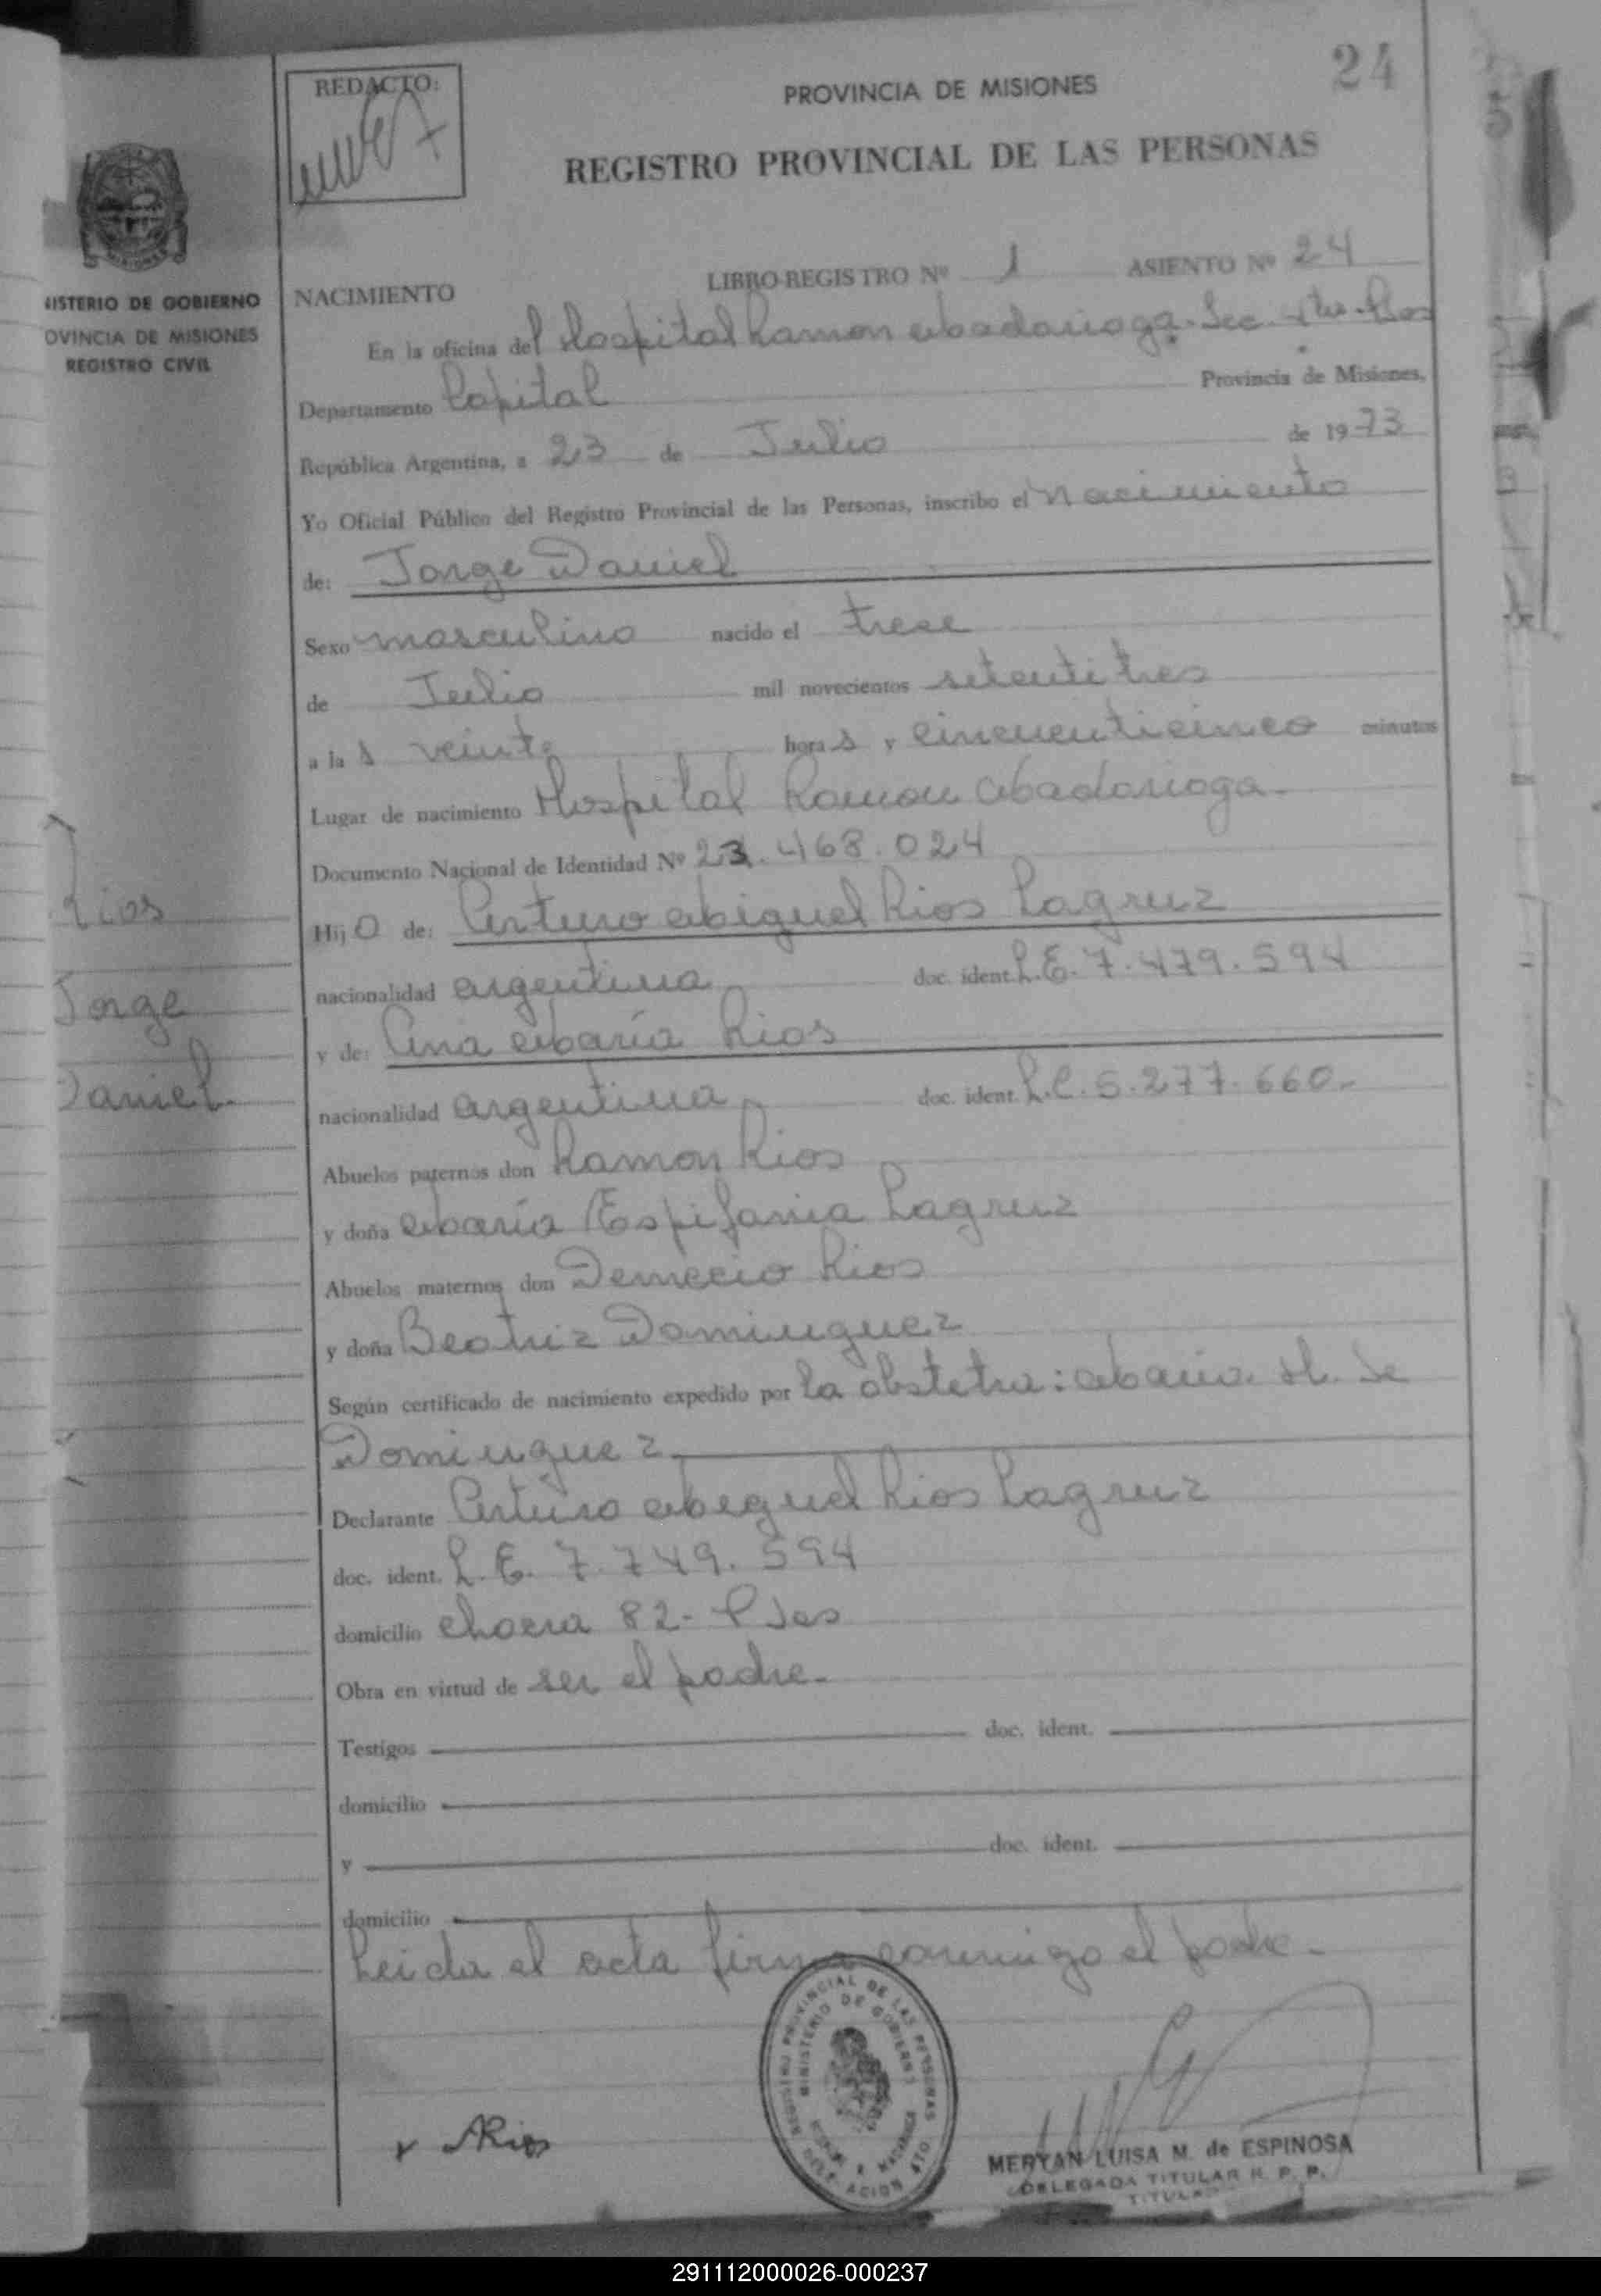 24
REDACTO:
PROVINCIA DE MISIONES
REGISTRO PROVINCIAL DE LAS PERSONAS
NISTERIO DE GOBIERNO
OVINCIA DE MISIONES
REGISTRO CIVIL
NACIMIENTO LIBRO-REGISTRO Nº 1 ASIENTO Nº 24
En la oficina del Hospital Ramon Madariaga. Sec. 4ta.
Departamento Capital Provincia de Misiones,
República Argentina, a 23 de Julio de 1973
Yo Oficial Público del Registro Provincial de las Personas, inscribo el Nacimiento
de: Jorge Daniel
Sexo masculino nacido el trece
de Julio mil novecientos setentitres
a las veinte horas y cincuenticinco minutos
Lugar de nacimiento Hospital Ramon Madariaga.
Documento Nacional de Identidad Nº 23.468.024
Rios
Hijo de: Arturo Miguel Rios Lagruz
nacionalidad argentina doc. ident. L.E. 7.479.594
Jorge
y de: Ana María Rios
Daniel.
nacionalidad argentina doc. ident. L.C. 5.277.660.-
Abuelos paternos don Ramon Rios
y doña María Espifania Lagruz
Abuelos maternos don Demecio Rios
y doña Beatriz Dominguez
Según certificado de nacimiento expedido por la obstetra: Maria H. de
Dominguez
Declarante Arturo Miguel Rios Lagruz
doc. ident. L.E. 7.749.594
domicilio chacra 82- Pdas
Obra en virtud de ser el padre.
Testigos doc. ident.
domicilio
y doc. ident.
domicilio
Leida el acta firma conmigo el padre.-
REGISTRO PROVINCIAL DE LAS PERSONAS
MINISTERIO DE GOBIERNO
ARios
MERYAN LUISA M. de ESPINOSA
DELEGADA TITULAR R. P. P.
TITULAR
291112000026-000237